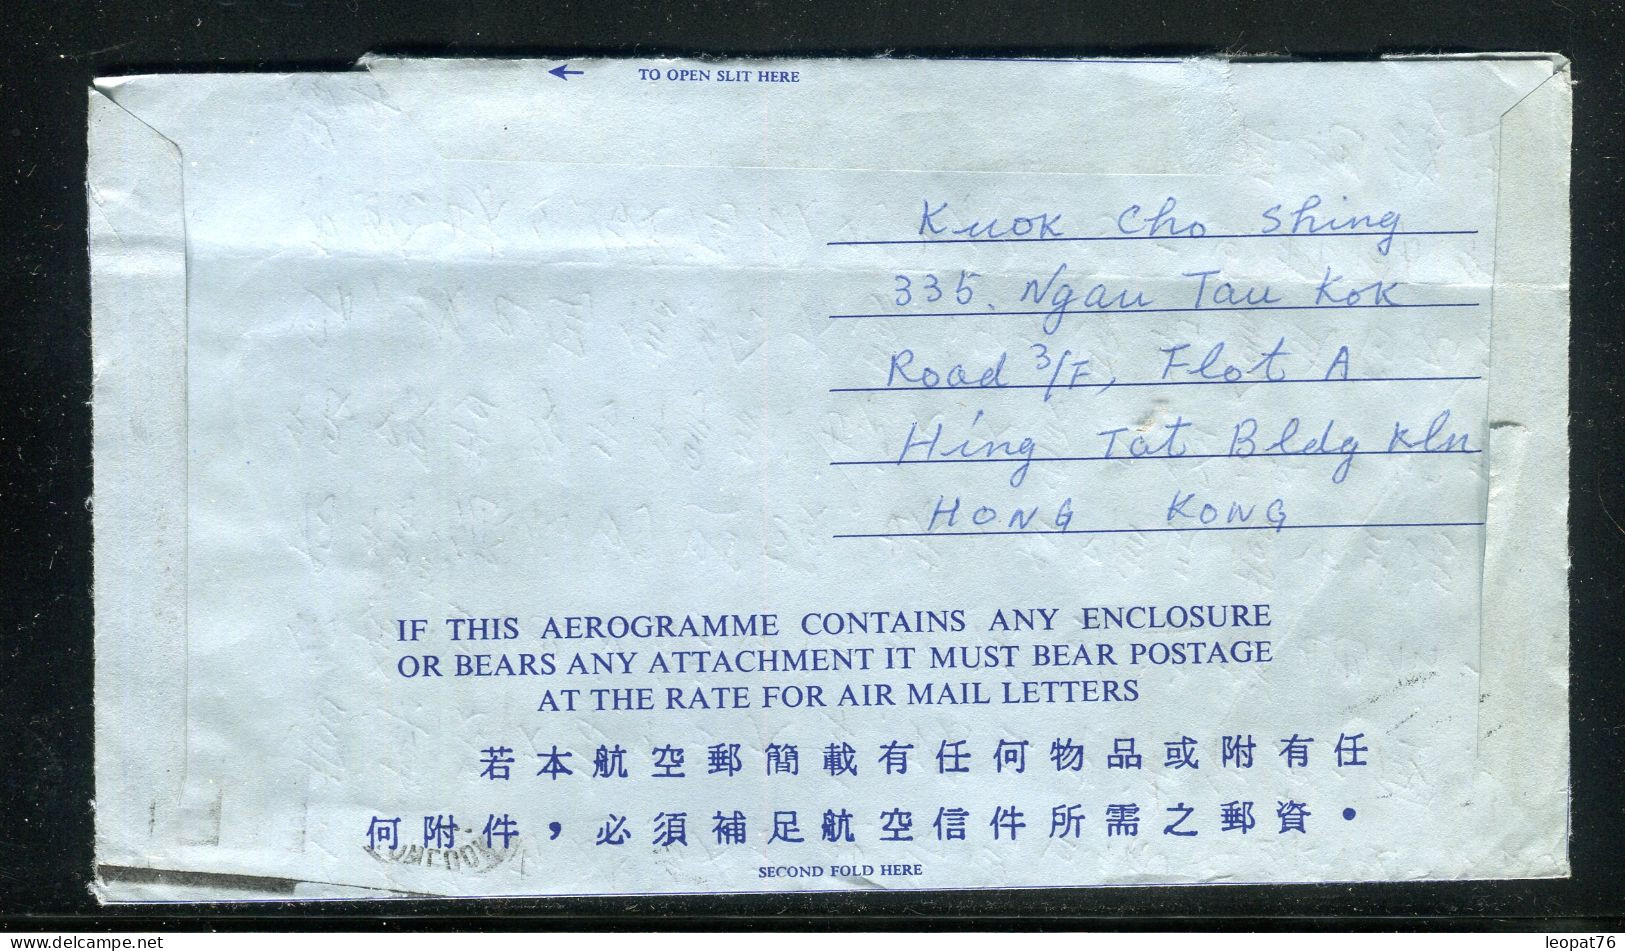 TO OPEN SLIT HERE
Kuok Cho Shing
335. Ngau Tau Kok
Road 3/F, Flot A
Hing Tat Bldg Kln
HONG KONG
IF THIS AEROGRAMME CONTAINS ANY ENCLOSURE
OR BEARS ANY ATTACHMENT IT MUST BEAR POSTAGE
AT THE RATE FOR AIR MAIL LETTERS
若本航空郵簡載有任何物品或附有任
何附件,必須補足航空信件所需之郵資。
SECOND FOLD HERE
delcampe.net
leopat76